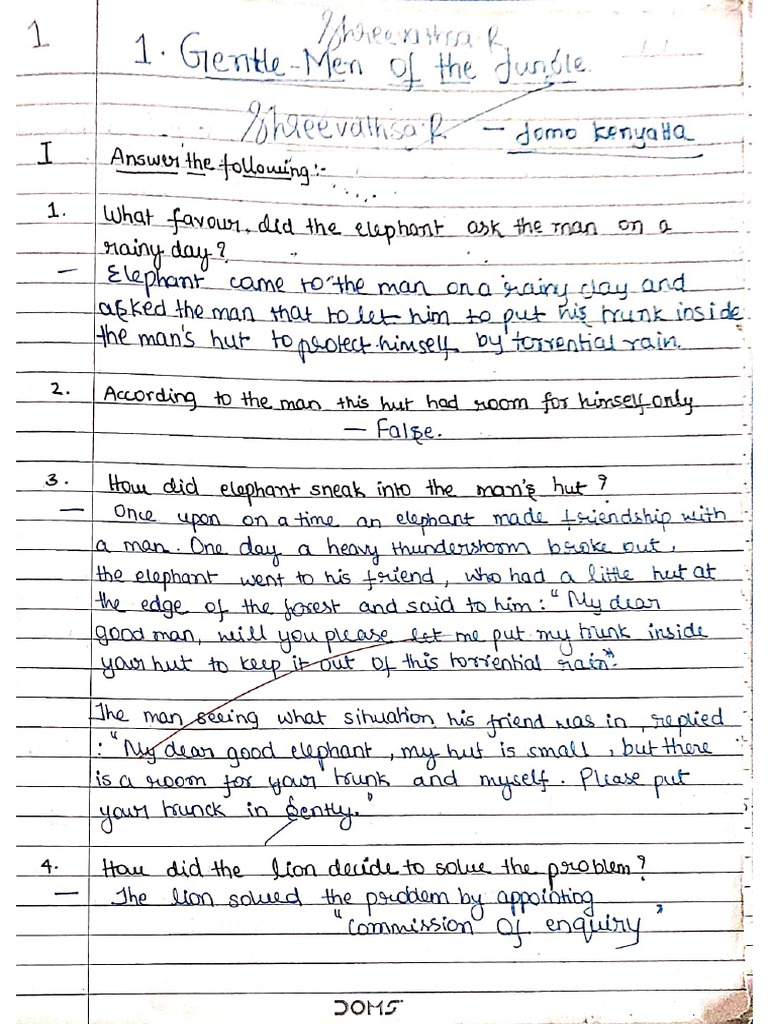 1
Shreevathsa.R
1. Gentle-Men of the Jungle.
Shreevathsa.R - Jomo Kenyatta
I Answer the following:-
1. What favour did the elephant ask the man on a
rainy day?
- Elephant came to the man on a rainy day and
asked the man that to let him to put his trunk inside
the man's hut to protect himself by torrential rain.
2. According to the man this hut had room for himself only
- False.
3. How did elephant sneak into the man's hut?
- Once upon on a time an elephant made friendship with
a man. One day a heavy thunderstorm broke out,
the elephant went to his friend, who had a little hut at
the edge of the forest and said to him: "My dear
good man, will you please let me put my trunk inside
your hut to keep it out of this torriential rain".
The man seeing what sihuation his friend was in, replied
: "My dear good elephant, my hut is small, but there
is a room for your trunk and myself. Please put
your trunck in gently."
4. How did the lion decide to solve the problem?
- The lion solved the problem by appointing
"commission of enquiry"
DOMS